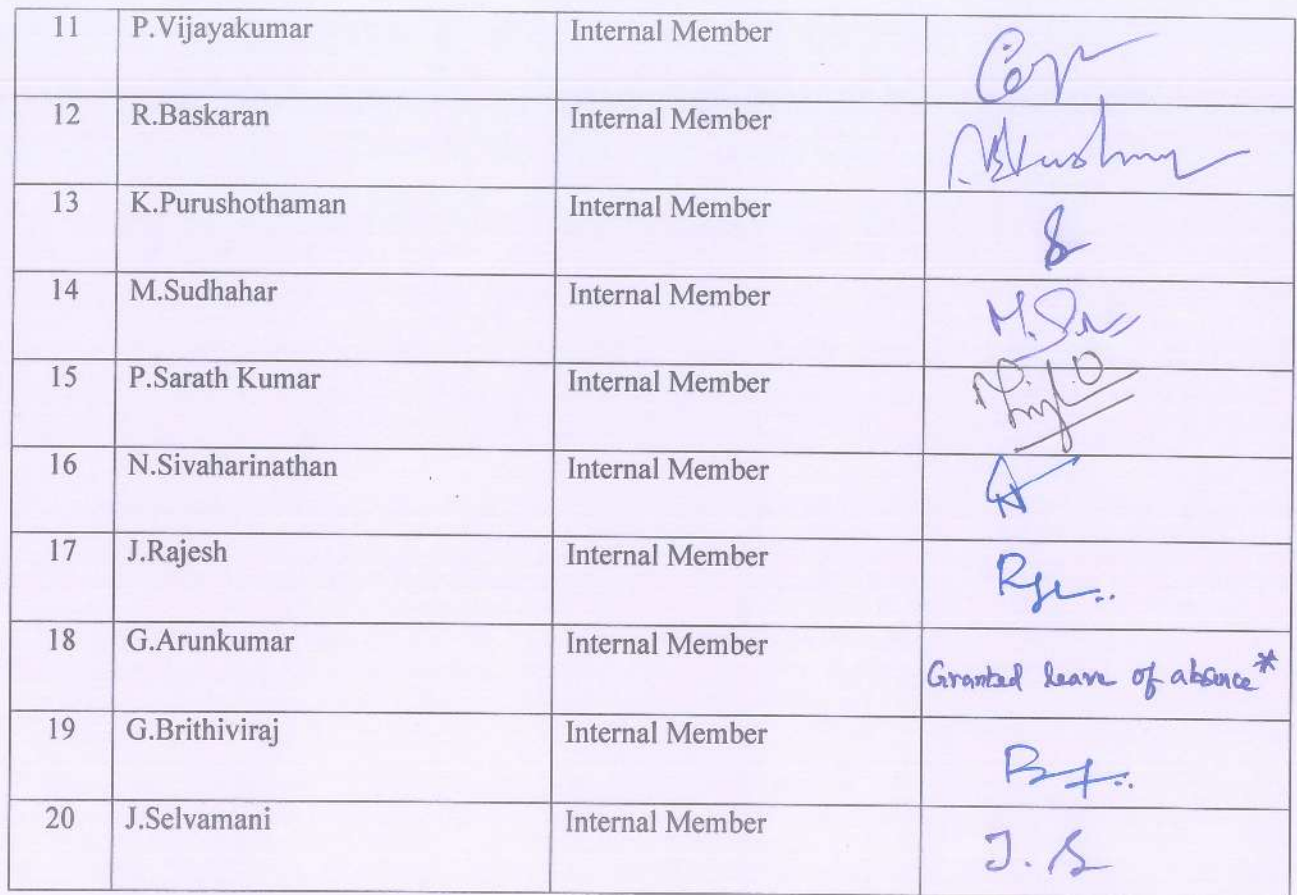 11 P.Vijayakumar Internal Member
12 R.Baskaran Internal Member
13 K.Purushothaman Internal Member
14 M.Sudhahar Internal Member
15 P.Sarath Kumar Internal Member
16 N.Sivaharinathan Internal Member
17 J.Rajesh Internal Member
18 G.Arunkumar Internal Member Granted leave of absence*
19 G.Brithiviraj Internal Member
20 J.Selvamani Internal Member J. S